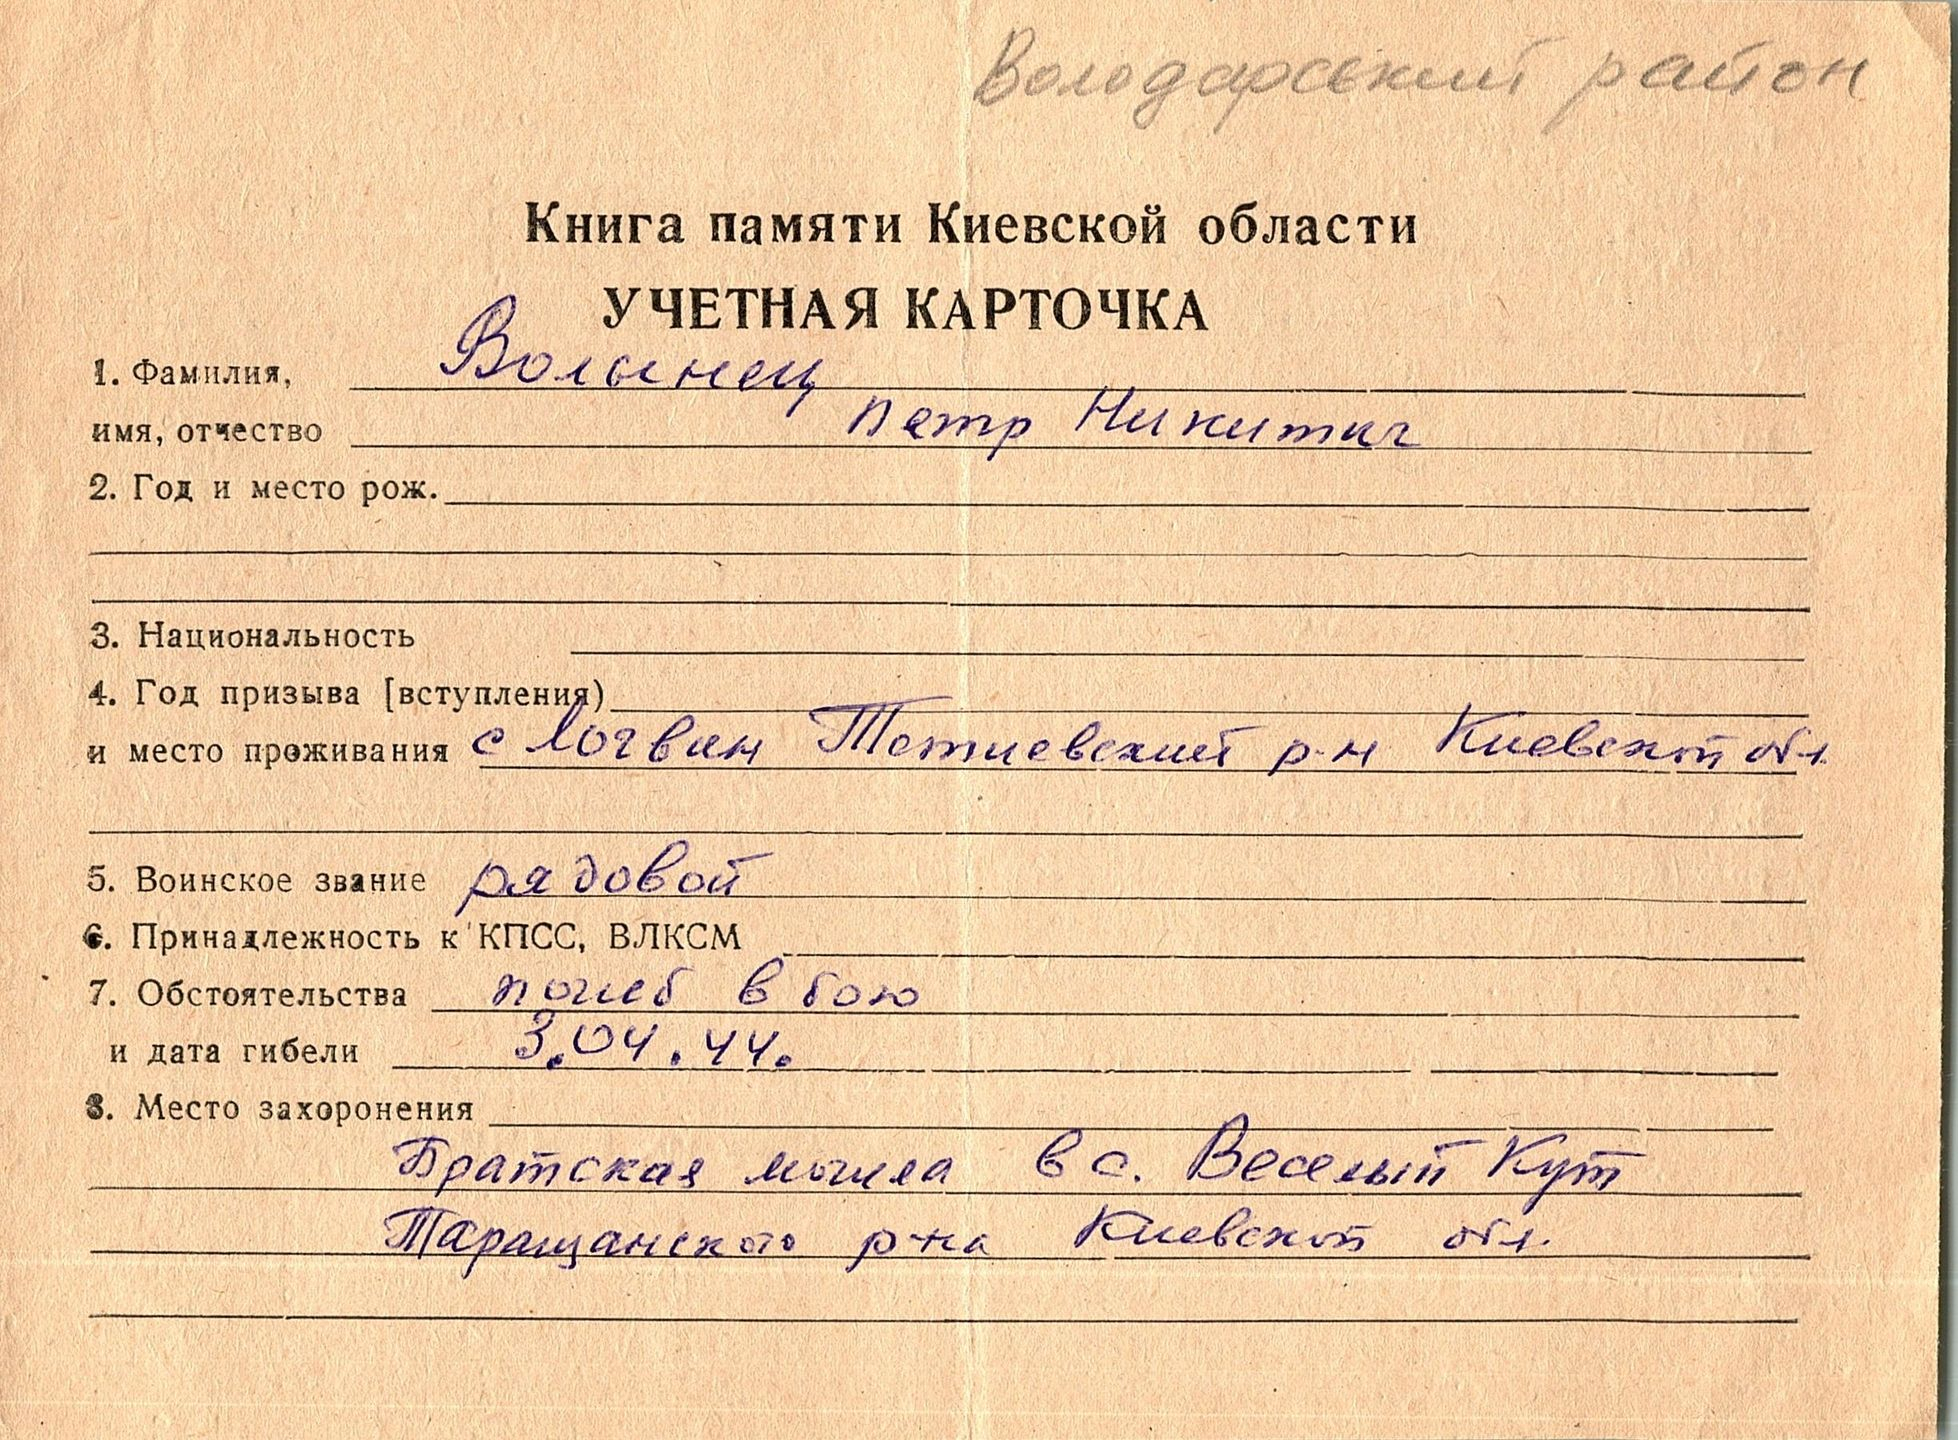 Володарський район
Книга памяти Киевской области
УЧЕТНАЯ КАРТОЧКА
1. Фамилия, Волынец
имя, отчество Петр Никитич
2. Год и место рож.
3. Национальность
4. Год призыва [вступления)
и место проживания с Логвин Тетиевский р-н Киевской обл.
5. Воинское звание рядовой
6. Принадлежность к КПСС, ВЛКСМ
7. Обстоятельства погиб в бою
и дата гибели 3.04.44.
8. Место захоронения
Братская могила в с. Веселый Кут
Таращанского р-на Киевской обл.